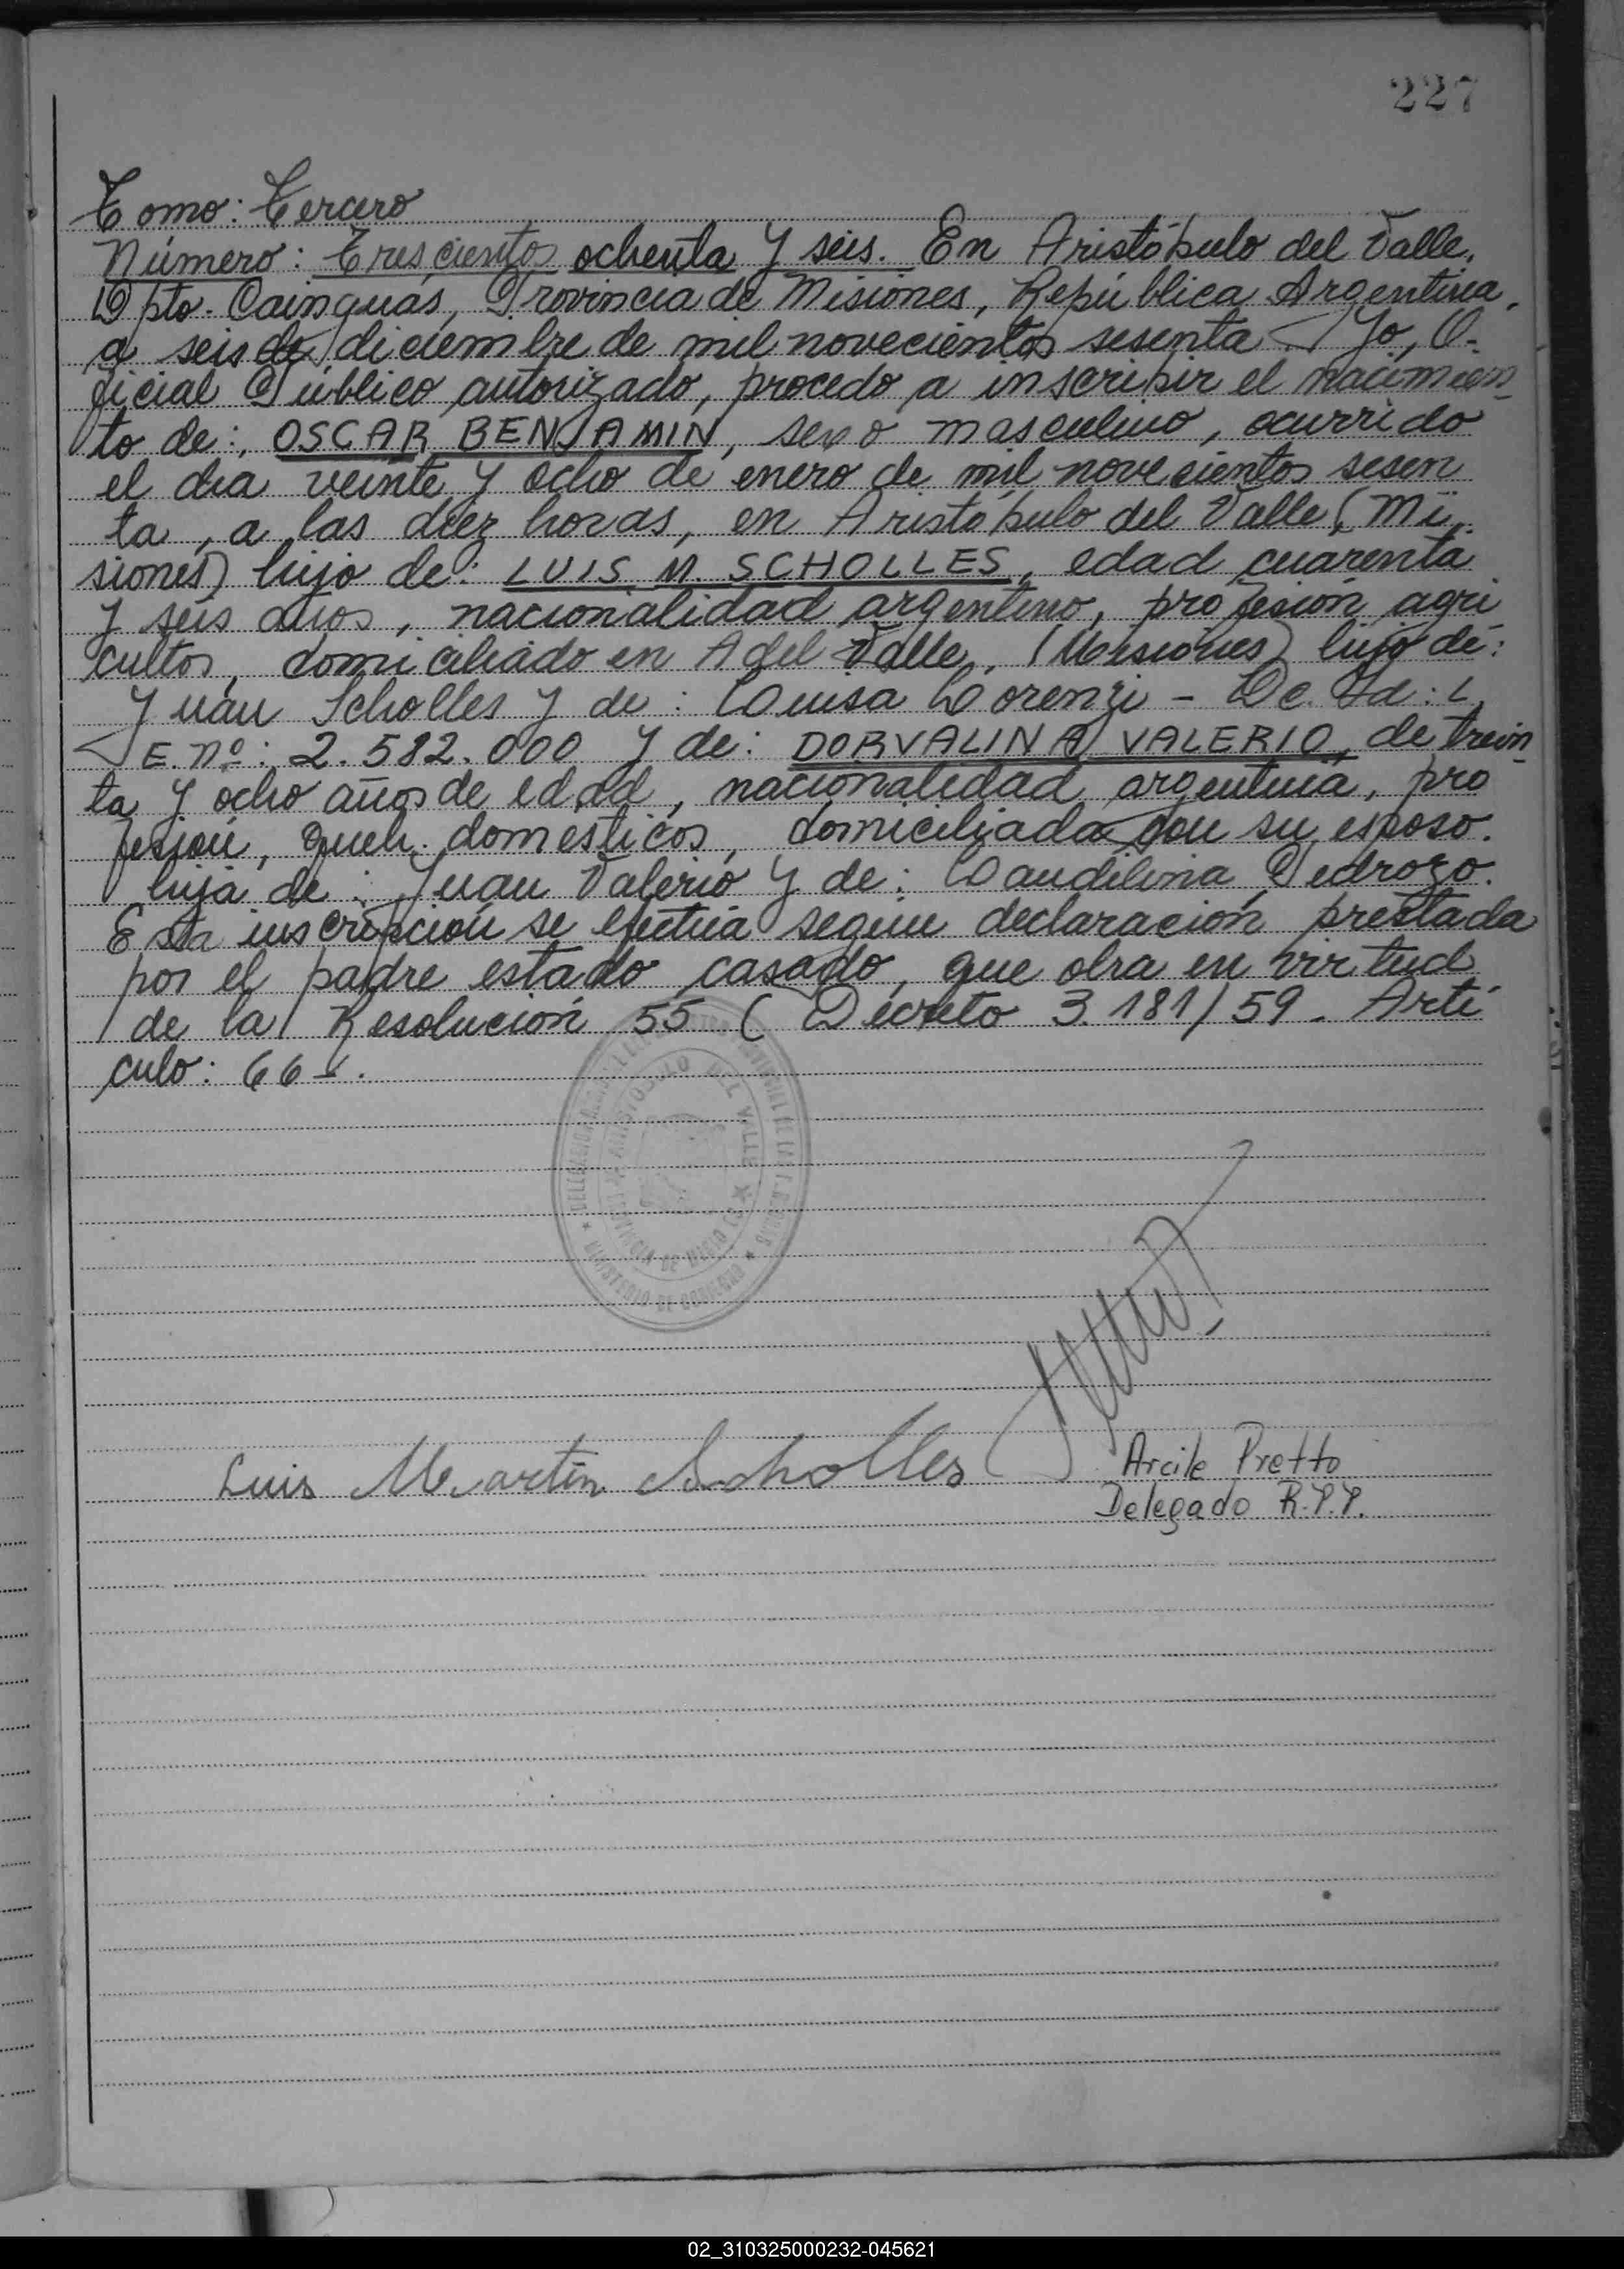 227
Tomo: Tercero
Número: Trescientos ochenta y seis. En Aristóbulo del Valle,
Dpto. Cainguás, Provincia de Misiones, República Argentina,
a seis de diciembre de mil novecientos sesenta. Yo, O-
ficial Público autorizado, procedo a inscribir el nacimien-
to de: OSCAR BENJAMIN, sexo masculino, ocurrido
el dia veinte y ocho de enero de mil novecientos sesen
ta, a las diez horas, en Aristóbulo del Valle, (Mi
siones) hijo de: LUIS M. SCHOLLES, edad cuarenta
y seis años, nacionalidad argentino, profesión agri
cultor, domiciliado en A del Valle, (Misiones) hijo de:
Juan Scholles y de: Luisa Lorenzi - Dc. Id: L
E. nº: 2.582.000 y de: DORVALINA VALERIO, de trein-
ta y ocho años de edad, nacionalidad argentina, pro
fesión, queh. domesticos, domiciliada con su esposo.
hija de: Juan Valerio y de: Laudilina Pedrozo.
Esta inscripción se efectúa según declaración prestada
por el padre estado casado, que obra en virtud
de la Resolución 55 (Decreto 3.181/59. Artí
culo: 66
DEL VALLE
Luis Martin Scholles
Arcile Pretto
Delegado R.P.P.
02_310325000232-045621